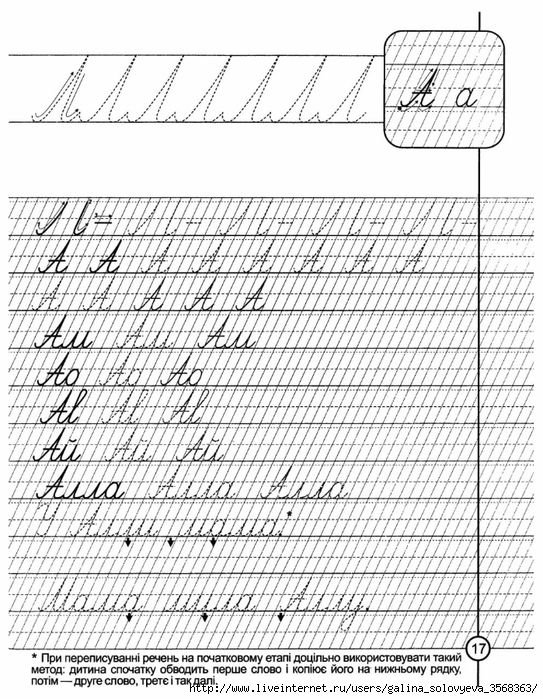 А а
А А А А А А А А
А А А А А
Ам Ам Ам
Ао Ао Ао
Ай Ай Ай
Алла Алла Алла
У Алли мама.*
Мама мила Аллу.
17
* При переписуванні речень на початковому етапі доцільно використовувати такий
метод: дитина спочатку обводить перше слово і копіює його на нижньому рядку,
потім — друге слово, третє і так далі.
http://www.liveinternet.ru/users/galina_solovyeva_3568363/